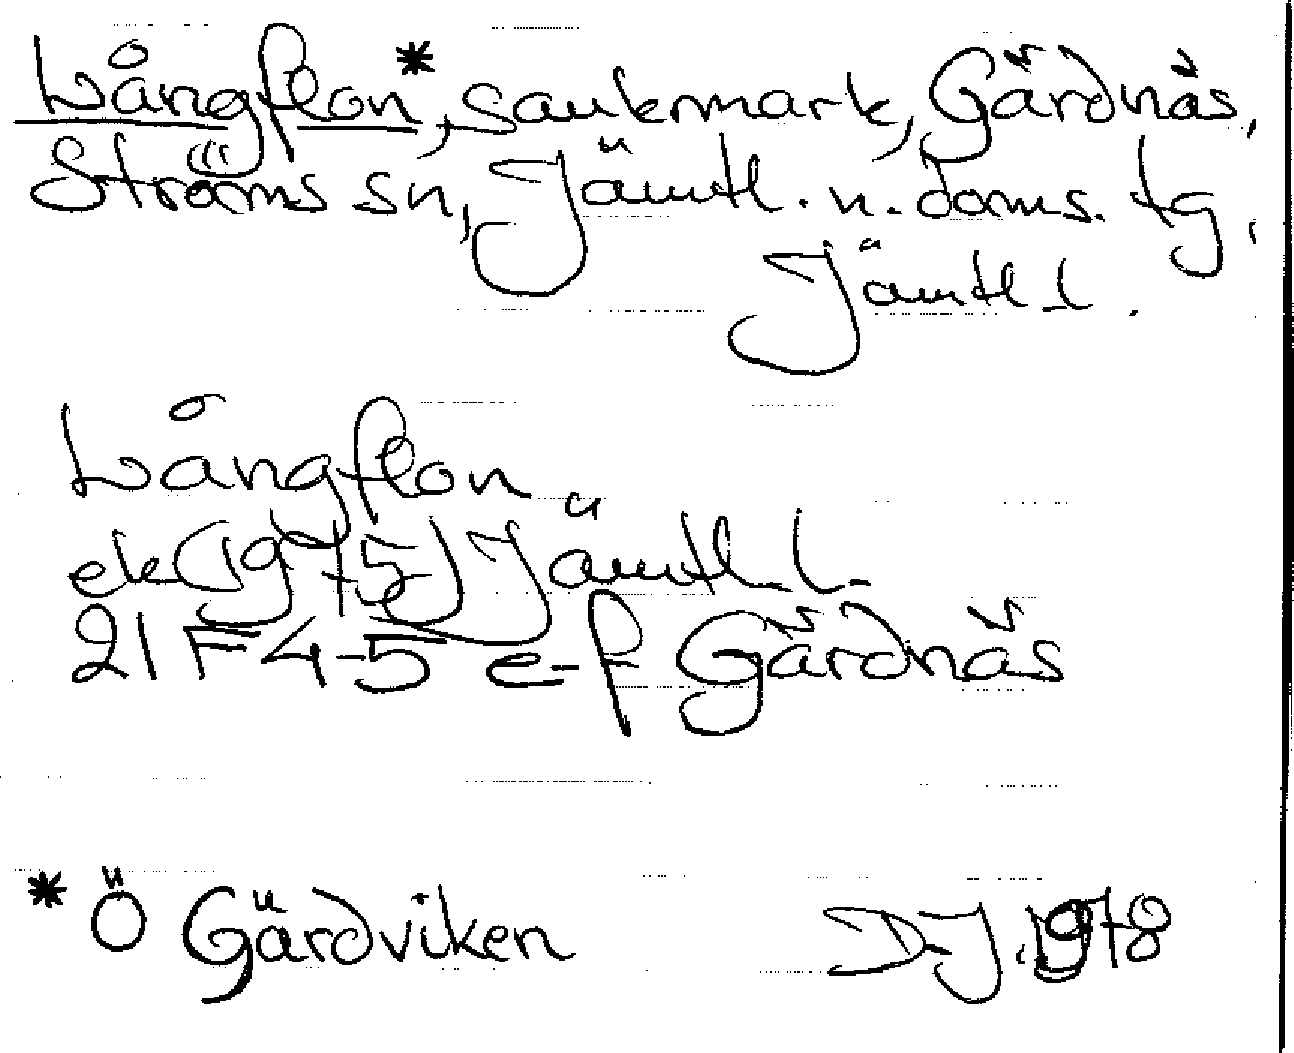 Långflon*, sankmark, Gärdnäs,
Ströms sn, Jämtl. n. doms. tg,
Jämtl l.
Långflon
ek (1975) Jämtl. l.
21F 4-5 e-f Gärdnäs
* Ö Gärdviken DJ. 1978